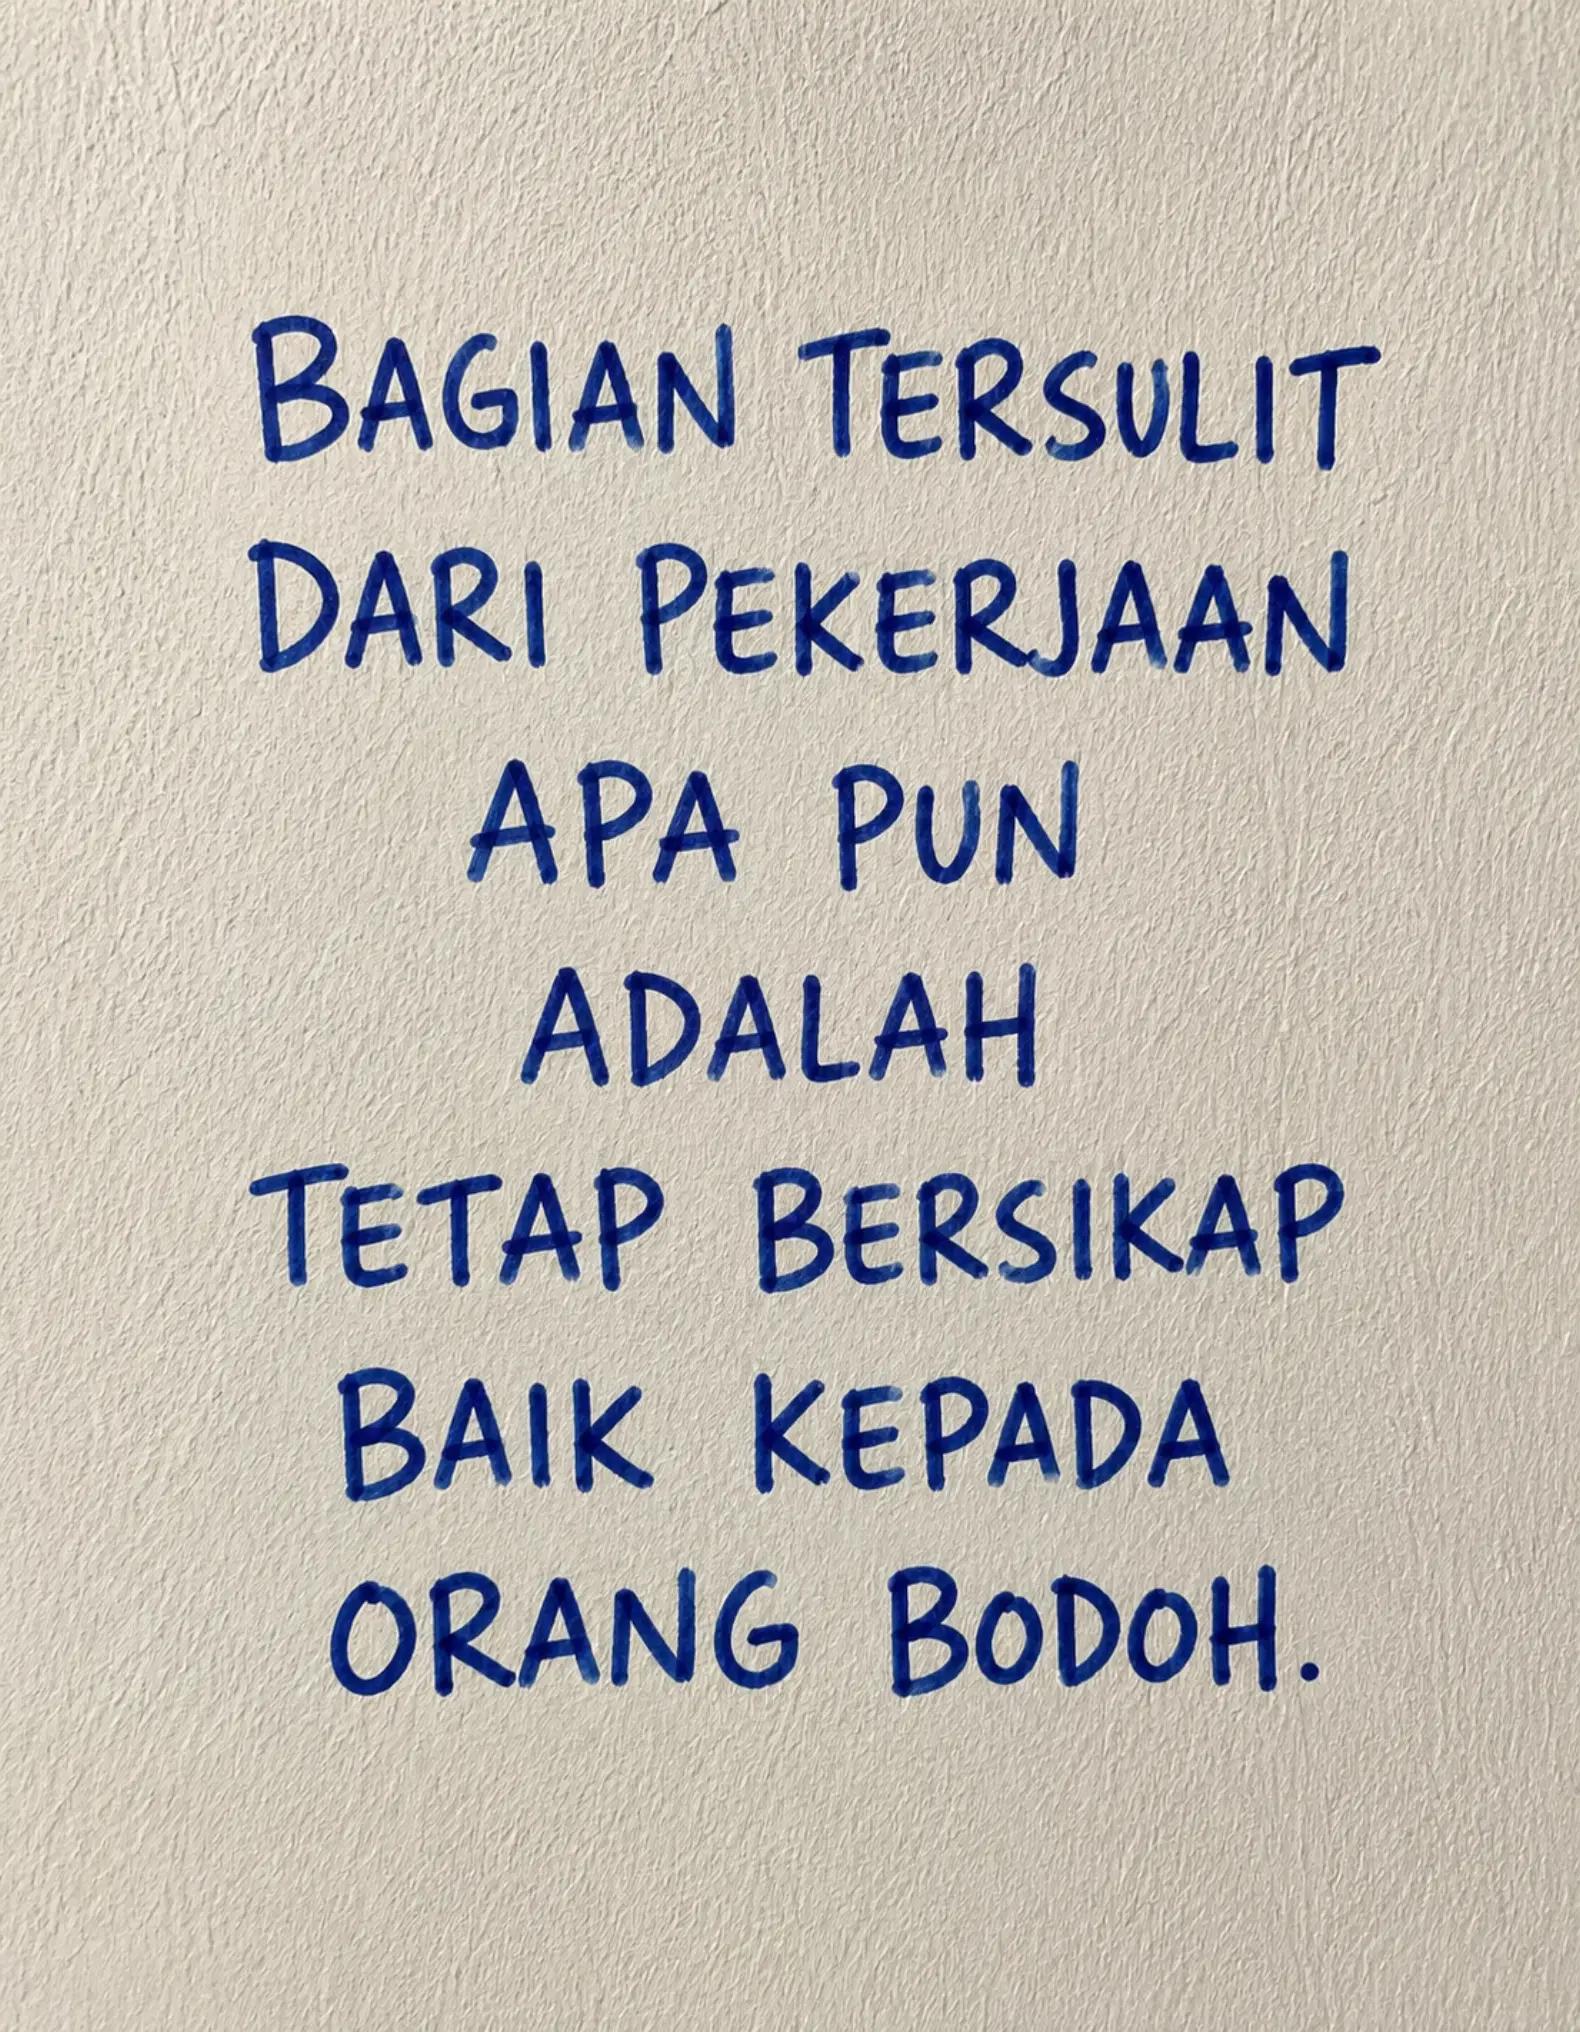 BAGIAN TERSULIT
DARI PEKERJAAN
APA PUN
ADALAH
TETAP BERSIKAP
BAIK KEPADA
ORANG BODOH.